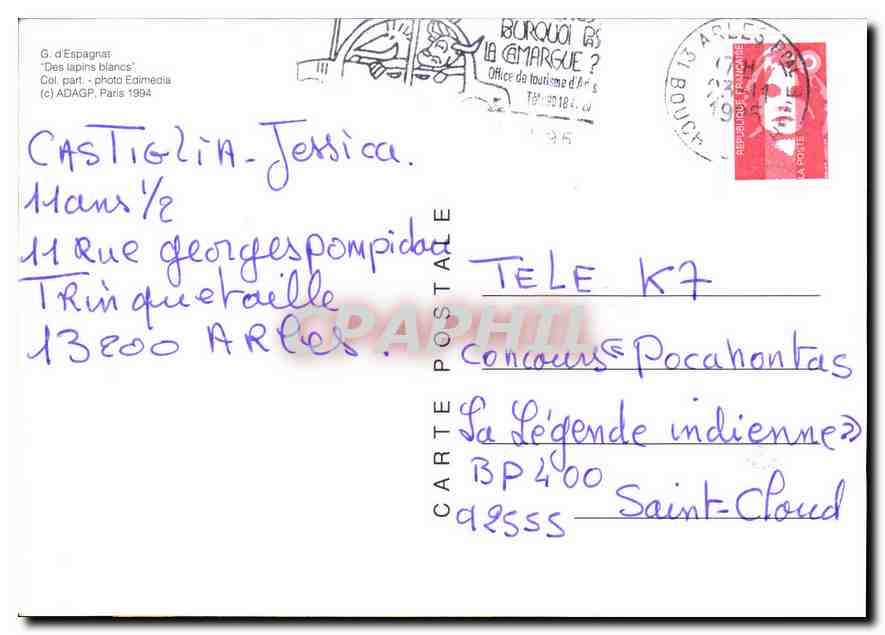 G. d'Espagnat
"Des lapins blancs"
Col. part. - photo Edimédia
(c) ADAGP, Paris 1994
PAS
LA CAMARGUE ?
Office de tourisme d'Arles
Tél. 90 18 4
95
13 ARLES PPAL
17H
BOUCH
REPUBLIQUE FRANÇAISE
LA POSTE
CASTIGLIA - Jessica.
11ans 1/2
11 Rue georges pompidou
Trinquetaille
13200 ARles.
CARTE POSTALE
CPAPHIL
TELE K7
Concours « Pocahontas
La Légende indienne »
BP 400
92555 Saint-Cloud